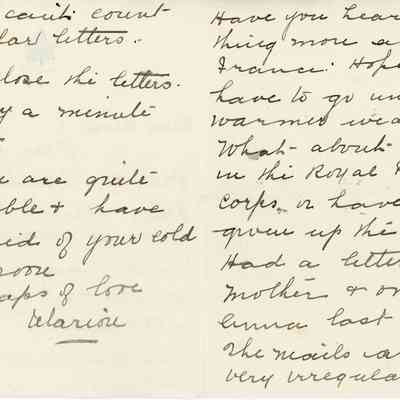 can't count
lar letters.
lose the letters.
y a minute
e are quite
ble & have
id of your cold
soon
aps of love
Marion
Have you hear
thing more a
France? Hope
have to go un
warmer wea
What about
in the Royal F
corps, or have
given up the
Had a letter
Mother & on
Emma last
The mails a
very irregula